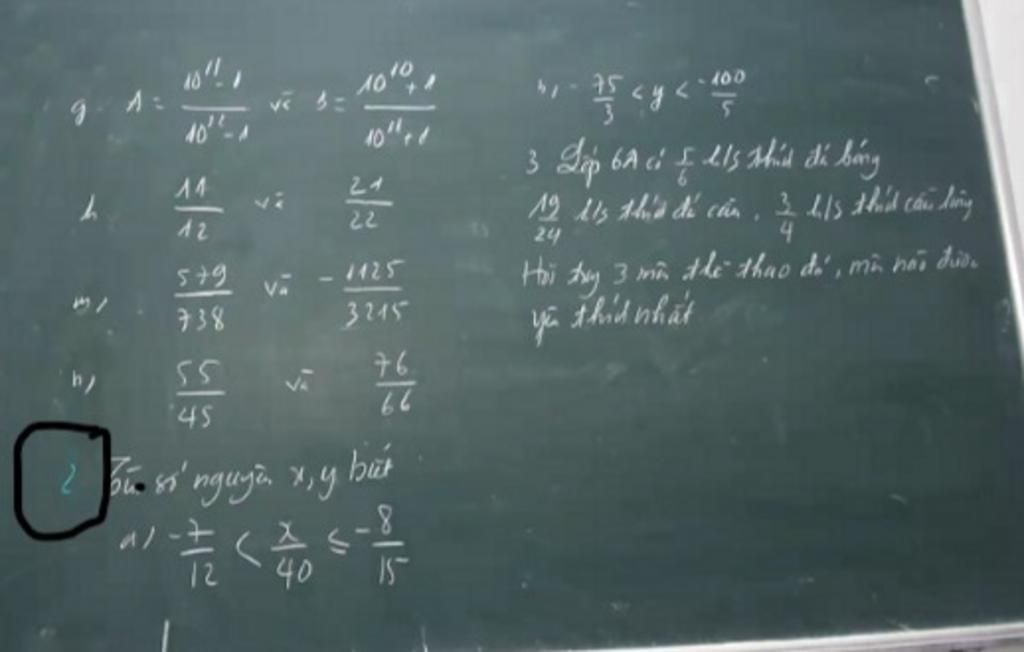 g. A = (10^11 - 1)/(10^12 - 1) và B = (10^10 + 1)/(10^11 + 1)
h 11/12 và 21/22
m, 579/738 và -1125/3215
n, 55/45 và 76/66
2 Tìm số nguyên x, y biết
a, -7/12 < x/40 ≤ -8/15
b, -75/3 < y < -100/5
3 Lớp 6A có 5/6 h/s thích đá bóng
19/24 h/s thích đá cầu, 3/4 h/s thích cầu lông
Hỏi trong 3 môn thể thao đó, môn nào được
yêu thích nhất